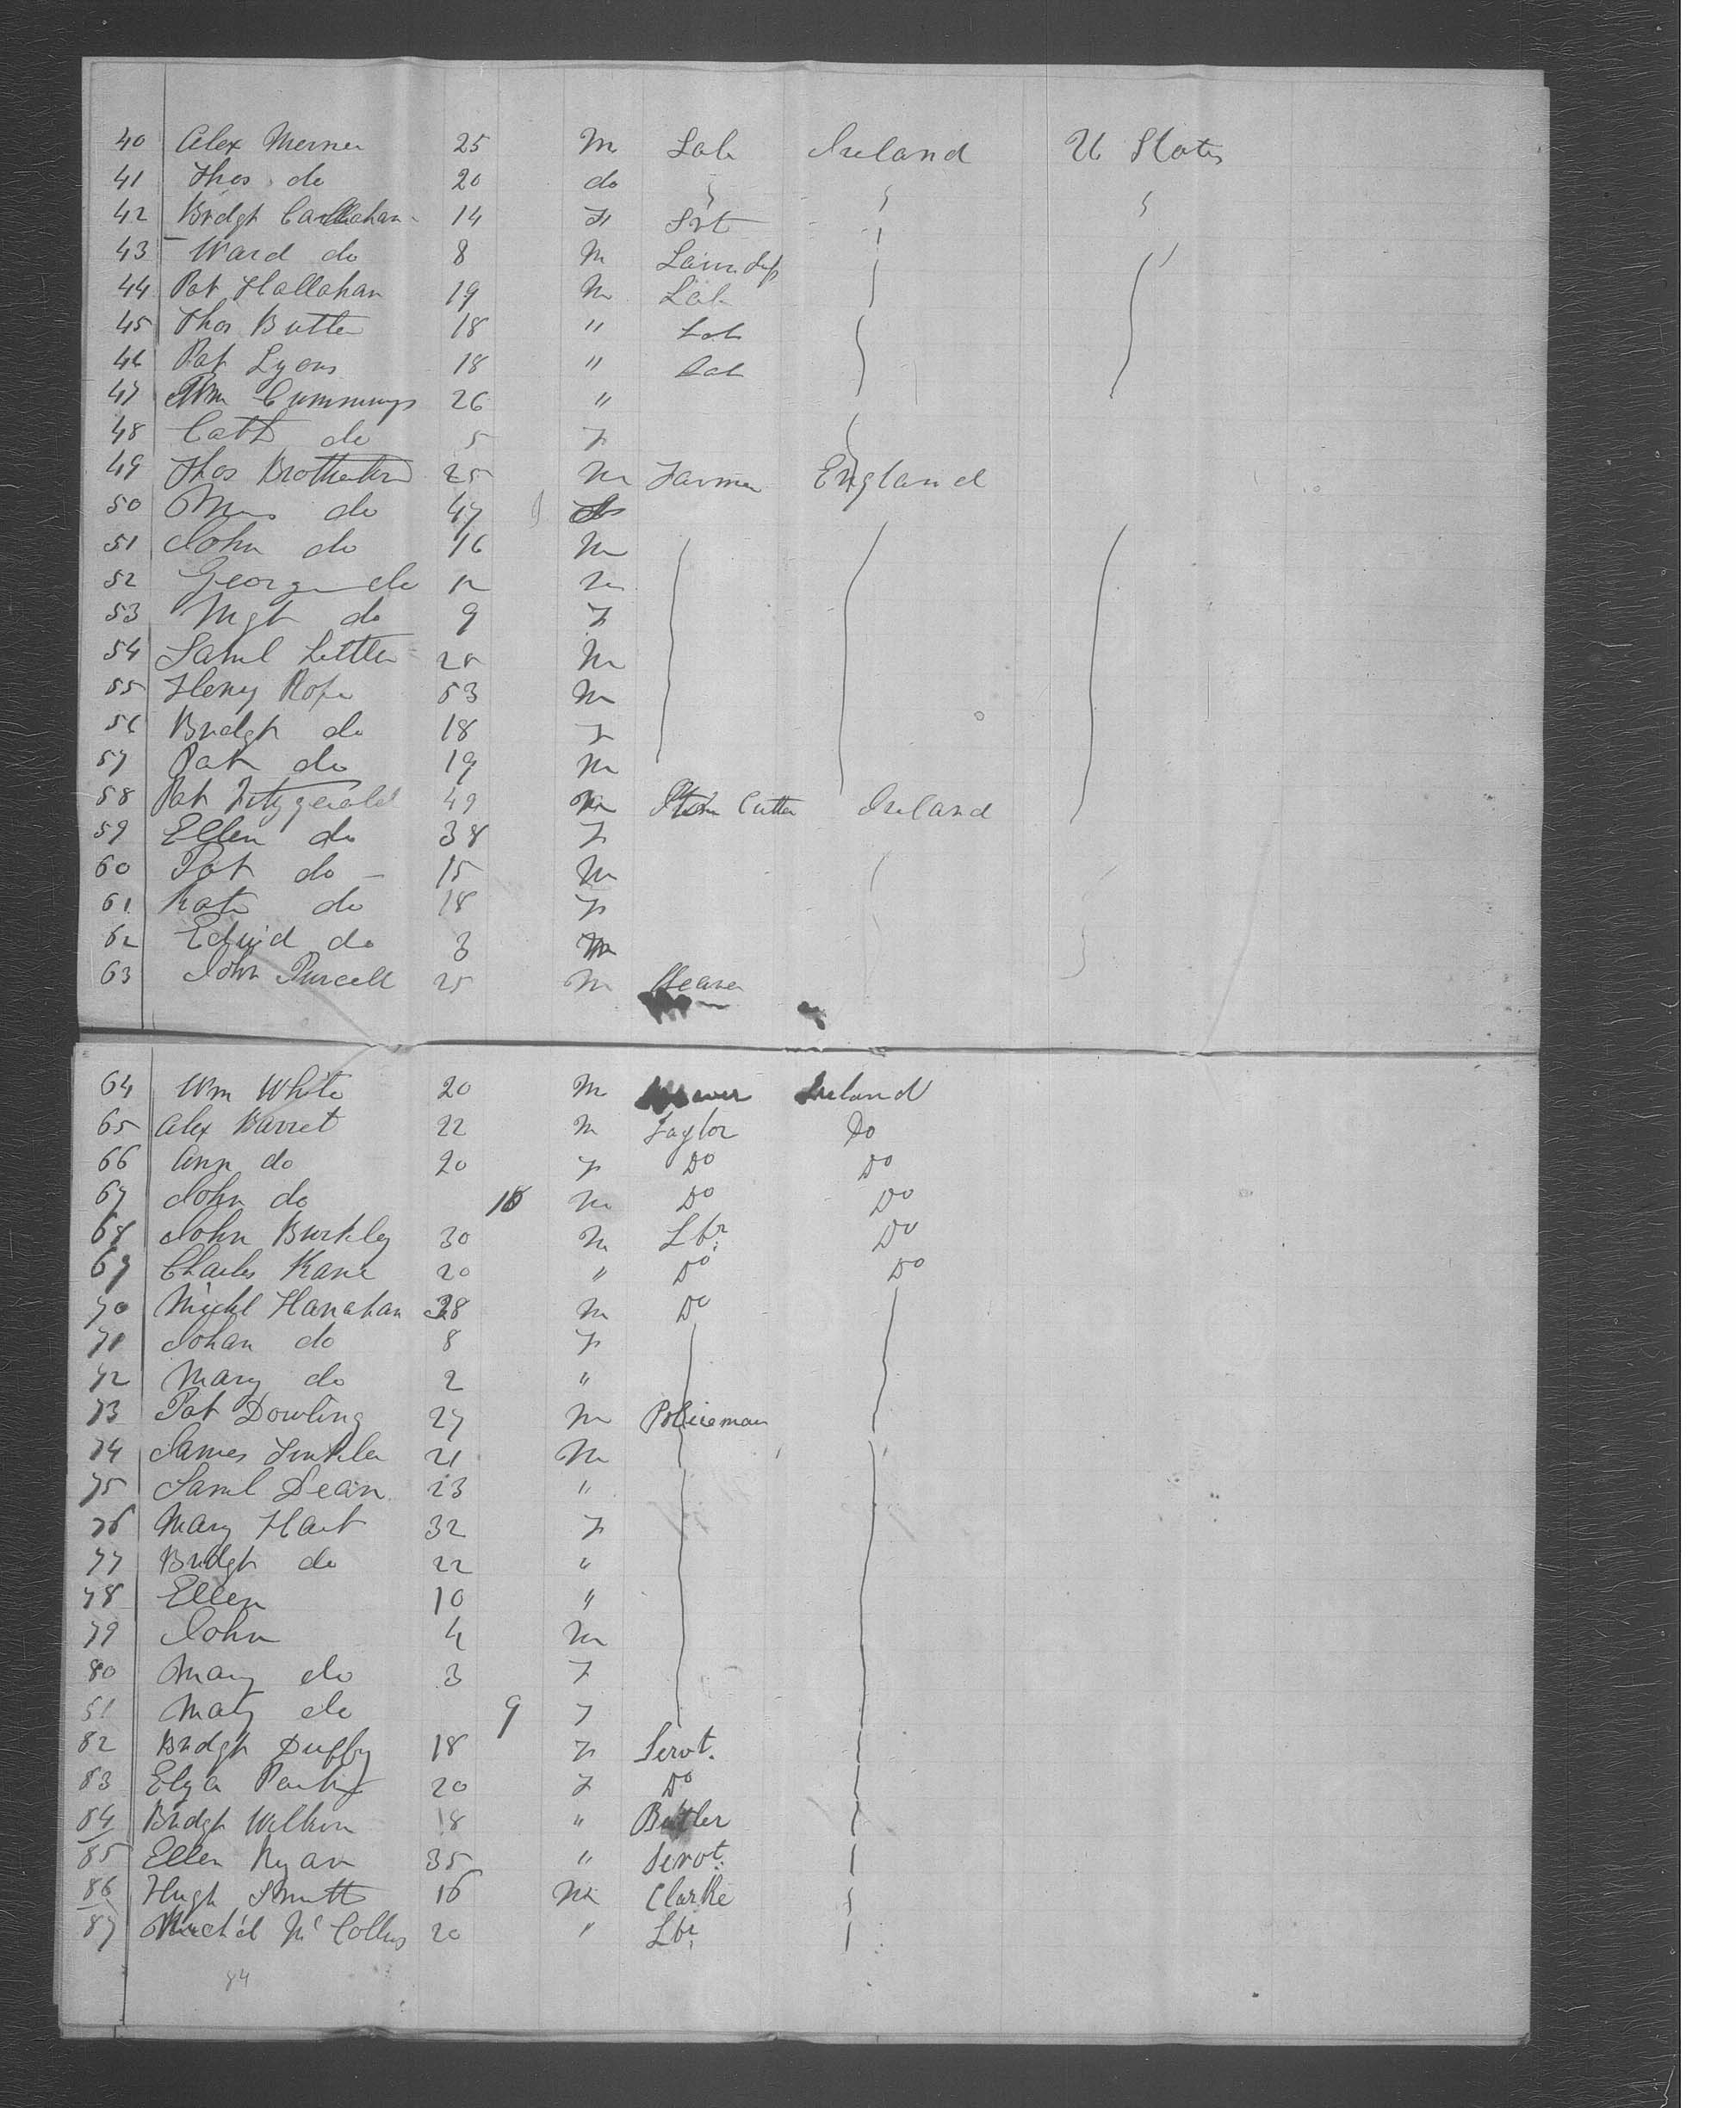 40 Alex Merner 25 M Lab Ireland U States
41 Thos do 20 do
42 Bridgt Callahan 14 F Svt
43 Ward do 8 M
44 Pat Hallahan 19 M Lab
45 Thos Butler 18 " Lab
46 Pat Lyons 18 " Lab
47 Wm Cummings 26 "
48 Cath do 5 F
49 Thos 25 M Farmer England
50 Mrs do 47
51 John do 16 M
52 George do 12 M
53 Mgt do 9 F
54 Saml Littler M
55 Heny Rope 53 M
56 Bridgt do 18 F
57 Pat do 19 M
58 Pat Fitzgerald 49 M Stone Cutter Ireland
59 Ellen do 38 F
60 Pat do - 15 M
61 Kate do 18 F
62 Edwd do 3 M
63 John Purcell 25 M
64 Wm White 20 M Ireland
65 Alex Barret 22 M Taylor Do
66 Ann do 20 F Do Do
67 John do 10 M Do Do
68 John Burkley 30 M Lbr Do
69 Charles Kane 20 " Do Do
70 Michl Hanahan 28 M Do
71 Johan do 8 F
72 Mary do 2 "
73 Pat Dowling 27 M Policeman
74 James 21 M
75 Saml Dean 23 "
76 Mary Hart 32 F
77 Bridgt do 22 "
78 Ellen 10 "
79 John 4 M
80 Mary do 3 F
81 Maty do 9 F
82 Bridgt Duffy 18 F Servt.
83 Elza 20 F Do
84 Bridgt 18 " Butler
85 Ellen Ryan 35 " Servt.
86 Hugh Smith 16 M Clarke
87 Mich'd Mc 20 " Lbr
84